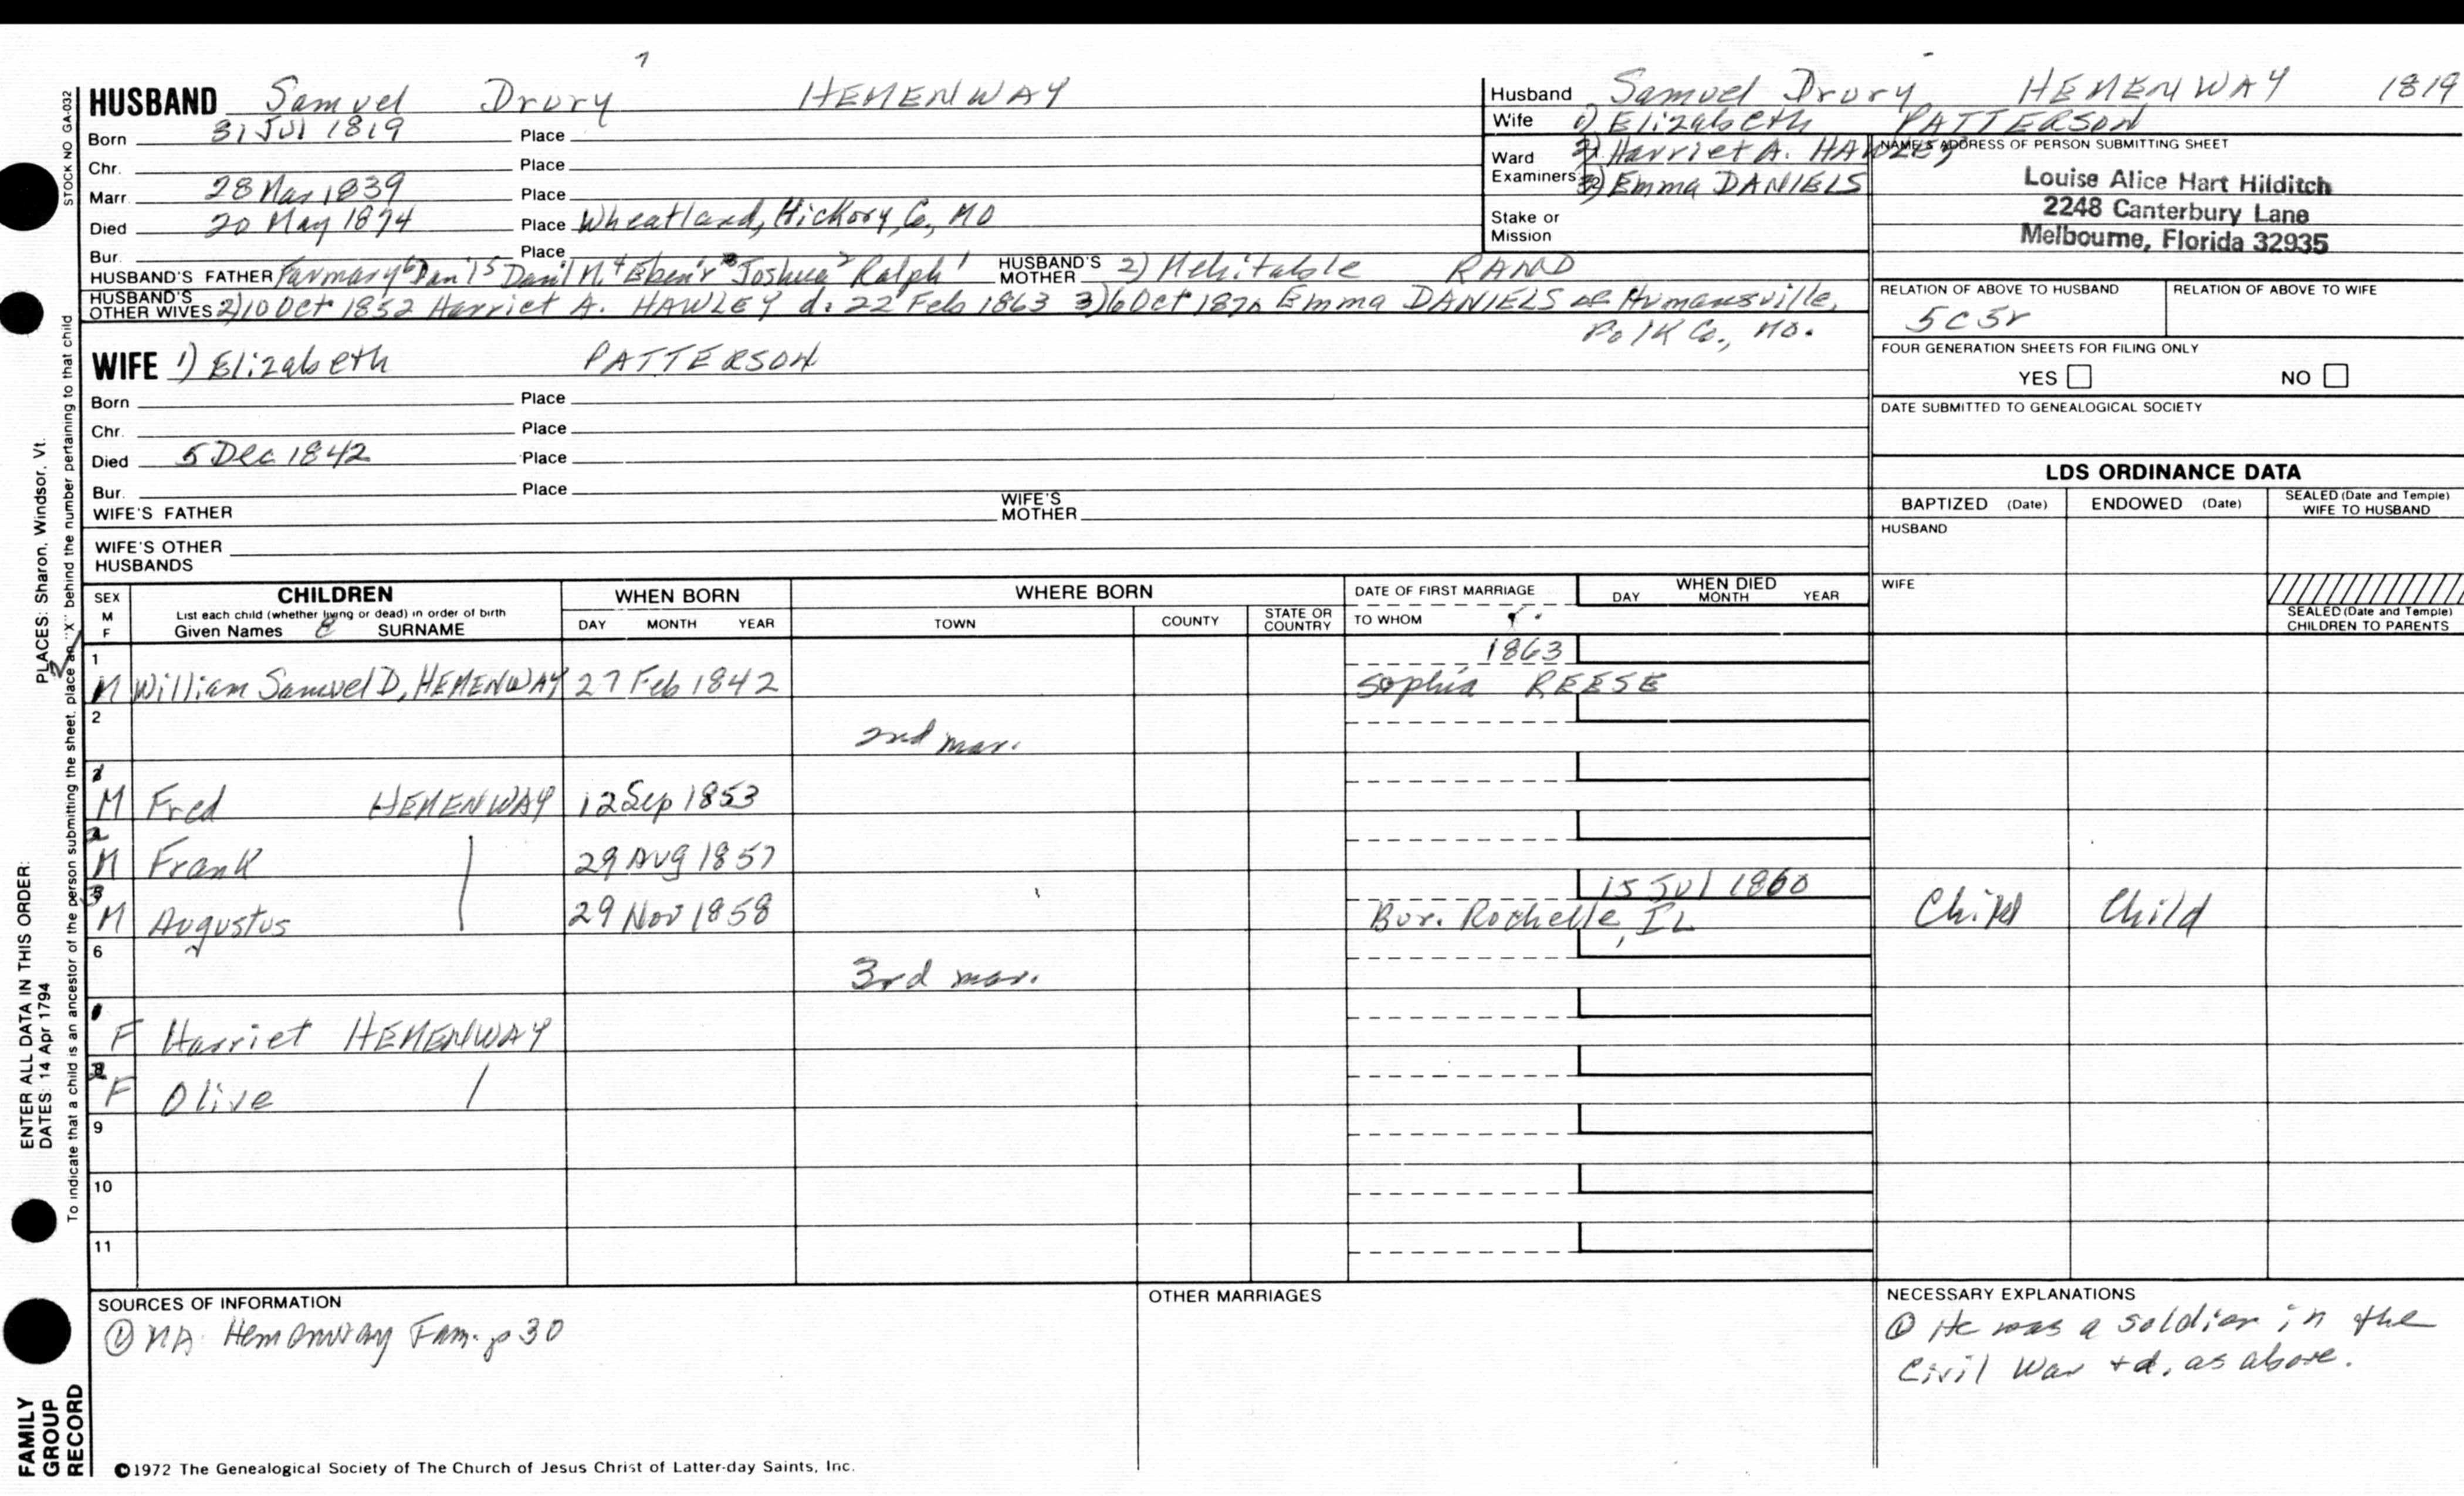 7
HUSBAND Samuel Drury HEMENWAY
Born 31 Jul 1819 Place
Chr. Place
Marr. 28 Mar 1839 Place
Died 20 May 1874 Place Wheatland, Hickory, Co, MO
Bur. Place
HUSBAND'S FATHER Farmary 6 Dan'l 5 Dan'l M. 4 Eben'r 3 Joshua 2 Ralph 1 HUSBAND'S MOTHER 2) Mehitable RAND
HUSBAND'S OTHER WIVES 2) 10 Oct 1852 Harriet A. HAWLEY d. 22 Feb 1863 3) 6 Oct 1870 Emma DANIELS of Humansville,
Polk Co., Mo.
WIFE 1) Elizabeth PATTERSON
Born Place
Chr. Place
Died 5 Dec 1842 Place
Bur. Place
WIFE'S FATHER WIFE'S MOTHER
WIFE'S OTHER HUSBANDS
Husband Samuel Drury HEMENWAY 1819
Wife 1) Elizabeth PATTERSON
Ward 2) Harriet A. HAWLEY
Examiners: 3) Emma DANIELS
Stake or Mission
NAME & ADDRESS OF PERSON SUBMITTING SHEET
Louise Alice Hart Hilditch
2248 Canterbury Lane
Melbourne, Florida 32935
RELATION OF ABOVE TO HUSBAND RELATION OF ABOVE TO WIFE
5c5r
FOUR GENERATION SHEETS FOR FILING ONLY
YES NO
DATE SUBMITTED TO GENEALOGICAL SOCIETY
LDS ORDINANCE DATA
BAPTIZED (Date) ENDOWED (Date) SEALED (Date and Temple) WIFE TO HUSBAND
HUSBAND
WIFE
SEALED (Date and Temple) CHILDREN TO PARENTS
SEX M F
CHILDREN
List each child (whether living or dead) in order of birth
Given Names SURNAME
WHEN BORN
DAY MONTH YEAR
WHERE BORN
TOWN COUNTY STATE OR COUNTRY
DATE OF FIRST MARRIAGE
TO WHOM
WHEN DIED
DAY MONTH YEAR
1 1863
M William Samuel D, HEMENWAY 27 Feb 1842 Sophia REESE
2
2nd mar.
1
M Fred HEMENWAY 12 Sep 1853
2
M Frank 29 Aug 1857
3 15 Jul 1860
M Augustus 29 Nov 1858 Bur. Rochelle, IL Child Child
6
3rd mar.
1
F Harriet HEMENWAY
2
F Olive
9
10
11
SOURCES OF INFORMATION
① MA: Hemenway Fam. p 30
OTHER MARRIAGES
NECESSARY EXPLANATIONS
① He was a soldier in the
Civil War + d, as above.
©1972 The Genealogical Society of The Church of Jesus Christ of Latter-day Saints, Inc.
FAMILY
GROUP
RECORD
ENTER ALL DATA IN THIS ORDER:
DATES: 14 Apr 1794
PLACES: Sharon, Windsor, Vt.
To indicate that a child is an ancestor of the person submitting the sheet, place an "X" behind the number pertaining to that child
STOCK NO GA-032